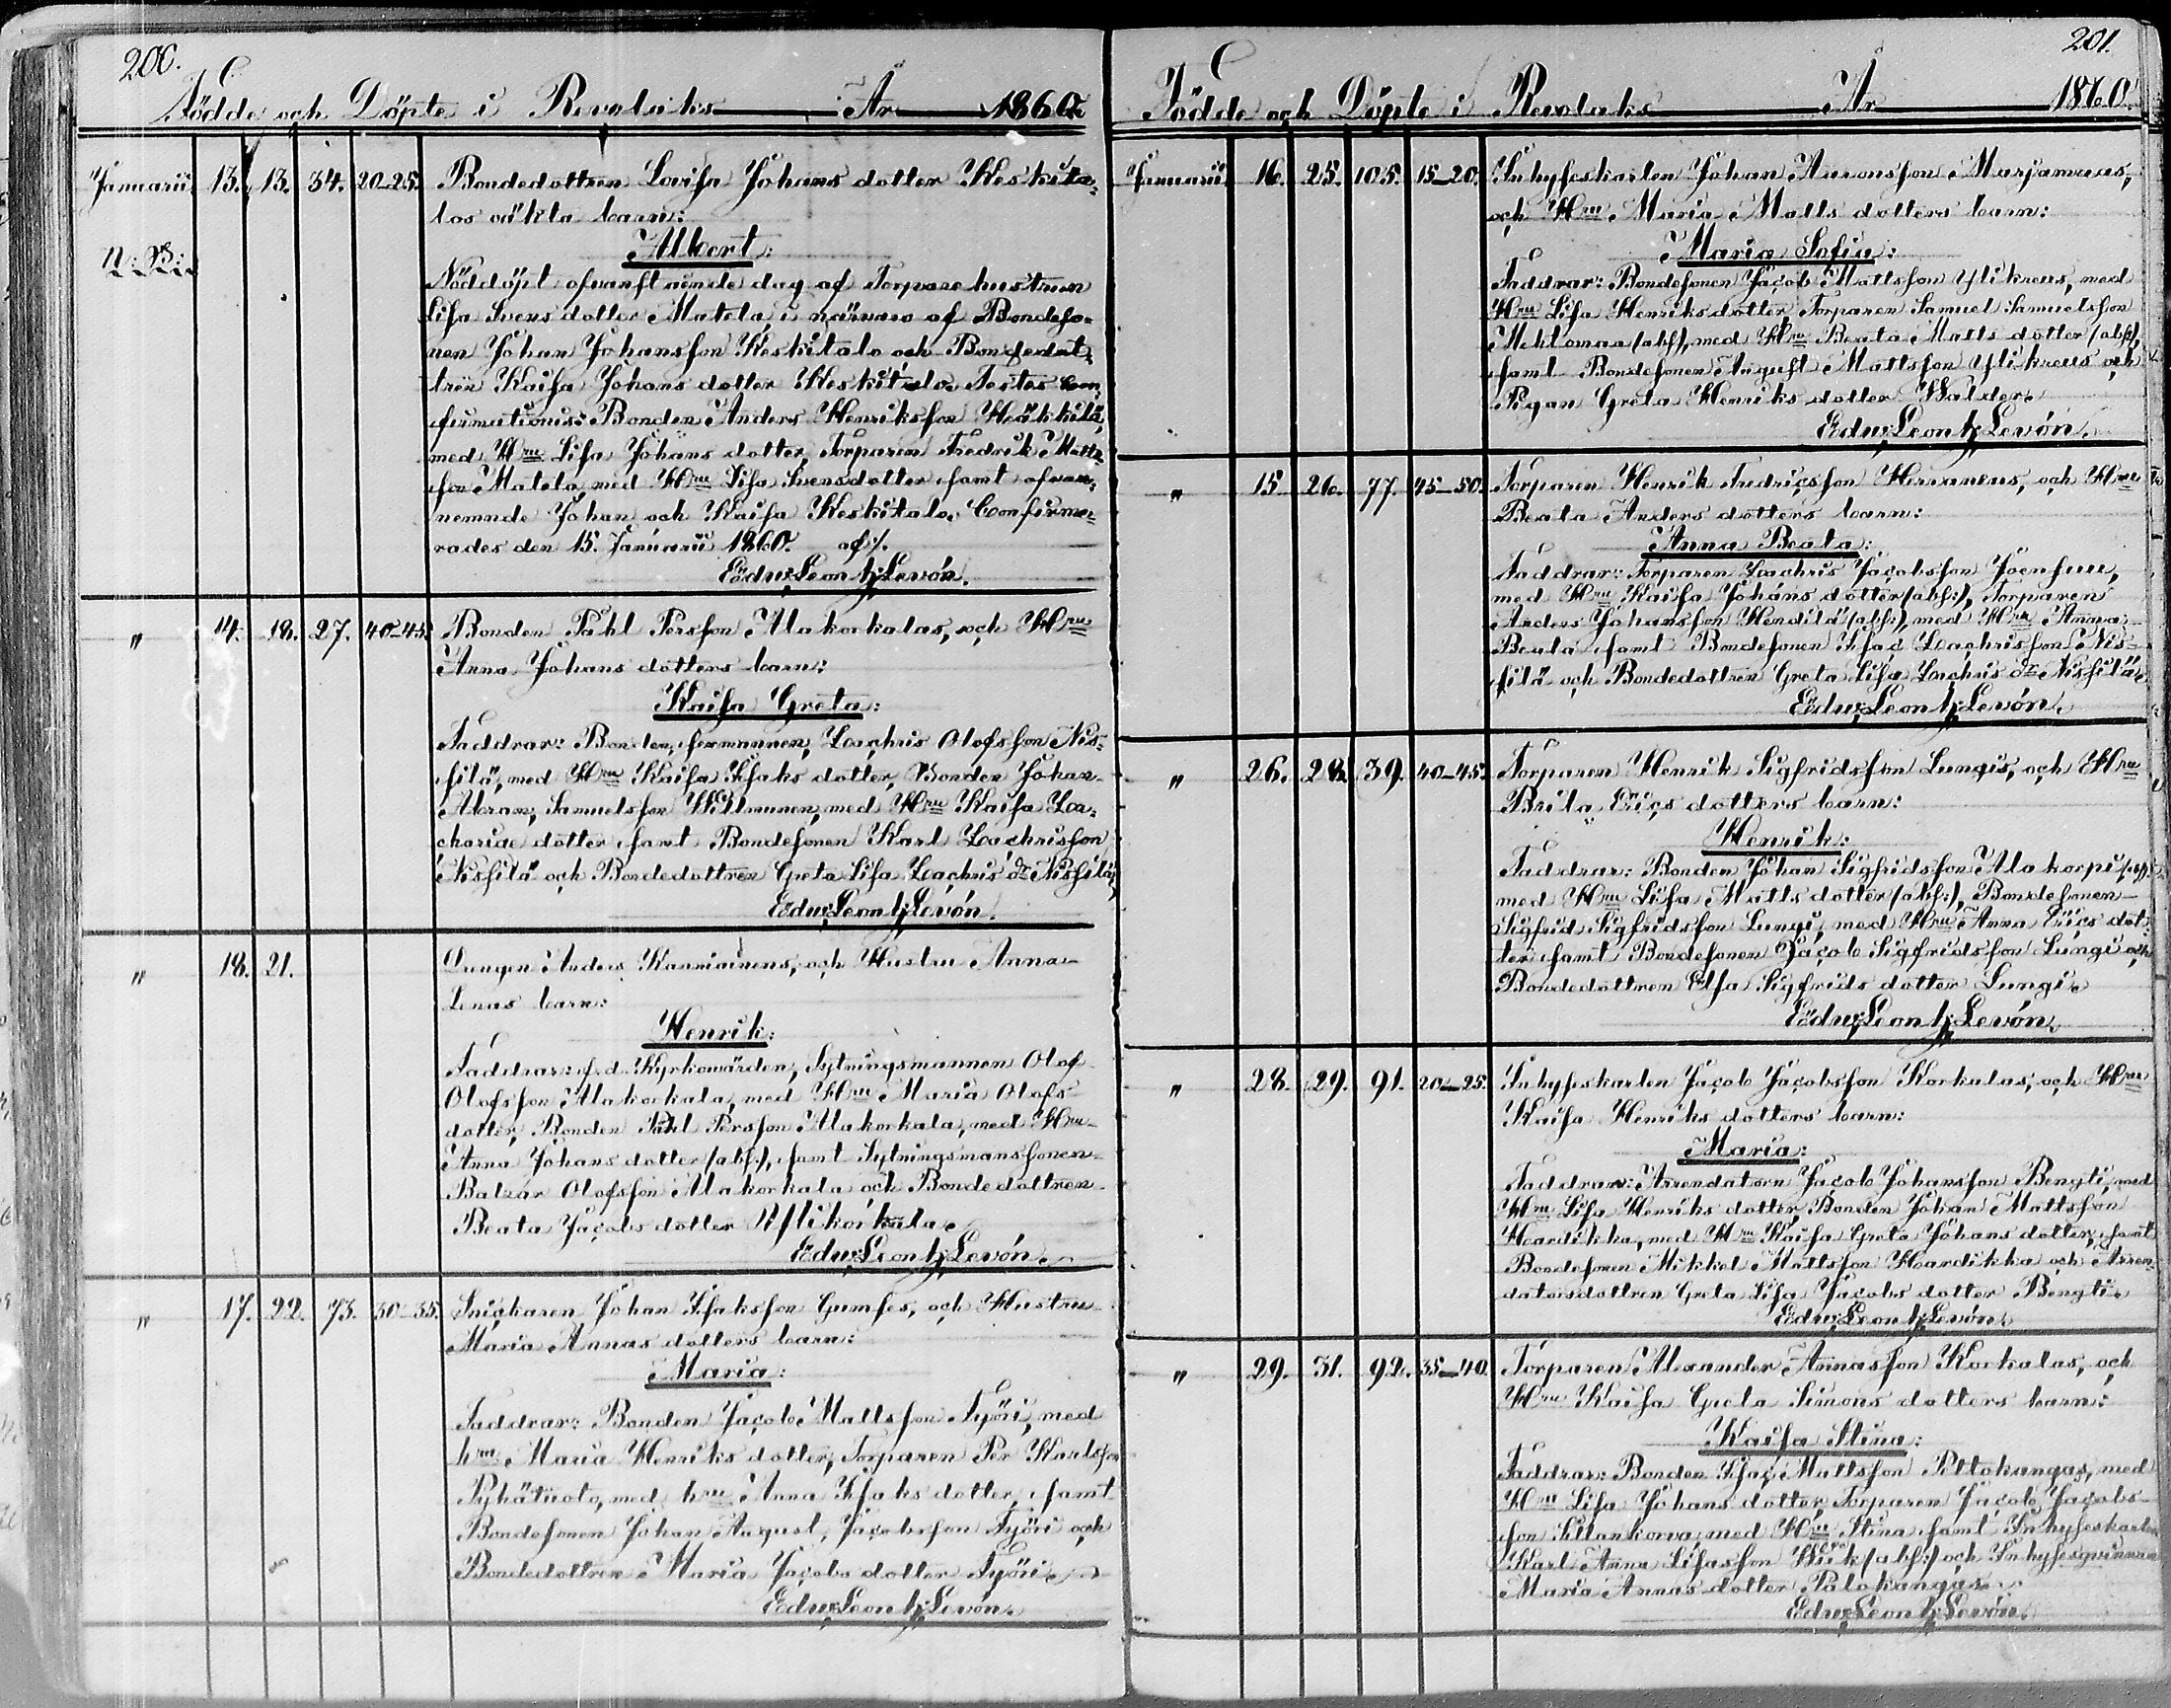 200.
Födde och Döpte i Revolaks År 1860.
Januarii 13. 13. 34. 20-25. Bondedottren Lovisa Johans dotter Keskita-
los oäkta barn:
N:B: Albert:
Nöddöpt ofvanstående dag af Torpare hustrun
Lisa Svens dotter Matela, i närvaro af Bondeso-
nen Johan Johansson Keskitalo och Bondedot-
tren Kaisa Johans dotter Keskitalo. Testes Con-
firmationis: Bonden Anders Henriksson Heikkilä,
med Hru Lisa Johans dotter, Torparen Fredrik Matts-
son Matela, med Hru Lisa Svensdotter samt ofvan-
nemnde Johan och Kaisa Keskitalo. Confirme-
rades den 15. Januarii 1860. af:/.
Edw: Leon h: Levón.
" 14. 18. 27. 40-45. Bonden Påhl Persson Alakorkalas, och Hru
Anna Johans dotters barn:
Kaisa Greta:
Faddrar: Bonden, sexmannen, Zachris Olofsson Nis-
silä, med Hru Kaisa Isaks dotter, Bonden Johan
Abram, Samuelsson Willmunen, med Hru Kaisa Za-
chariae dotter samt Bondesonen Karl Zachrisson
Nissilä och Bondedottren Greta Lisa Zachris dr Nissilä,
Edw: Leon h: Levón.
" 18. 21. Drengen Anders Karmiainens, och Hustru Anna
Lenas barn:
Henrik:
Faddrar: f. d. Kyrkowärden, Sytningsmannen Olof
Olofsson Alakorkala, med Hru Maria Olofs
dotter, Bonden Påhl Persson Alakorkala, med Hru
Anna Johans dotter (abs:), samt Sytningsmanssonen
Balzar Olofsson Alakorkala och Bondedottren
Beata Jacobs dotter Ylikorkala.
Edw: Leon h: Levón.
" 17. 22. 73. 30-35. Snickaren Johan Isaksson Gumses, och Hustru
Maria Annas dotters barn:
Maria:
Faddrar: Bonden Jacob Mattsson Työri, med
hru Maria Henriks dotter, Torparen Per Karlsson
Pyhätuoto, med hru Anna Isaks dotter, samt
Bondesonen Johan August, Jacobsson Työri och
Bondedottren Maria Jacobs dotter Työri.
Edw: Leon h: Levón.
201.
Födde och Döpte i Revolaks År 1860.
Januarii 16. 25. 105. 15-20. Inhyseskarlen Johan Aaronsson Marjamaas,
och Hru Maria Matts dotters barn:
Maria Sofia:
Faddrar: Bondesonen Jacob Mattsson Ylikreus, med
Hru Lisa Henriks dotter, Torparen Samuel Samuelsson
Mehtomaa (abs), med Hru Beata Matts dotter (abs),
samt Bondesonen August Mattsson Ylikreus och
Pigan Greta Henriks dotter Halder.
Edw: Leon h: Levón.
" 15. 26. 77. 45-50. Torparen Henrik Fredricsson Herranens, och Hru
Beata Anders dotters barn:
Anna Beata:
Faddrar: Torparen Zachris Jacobsson Joensuu,
med Hru Kaisa Johans dotter (abs:), Torparen
Anders Johansson Hendilä (abs:), med Hru Anna
Beata, samt Bondesonen Isac Zachrisson Nis-
silä och Bondedottren Greta Lisa Zachris dr Nissilä.
Edw: Leon h: Levón.
" 26. 28. 39. 40-45. Torparen Henrik Sigfridsson Lungis, och Hru
Brita Erics dotters barn:
Henrik:
Faddrar: Bonden Johan Sigfridsson Alakorpi (abs),
med Hru Lisa Matts dotter (abs:), Bondesonen
Sigfrid Sigfridsson Lungi, med Hru Anna Erics dot-
ter samt Bondesonen Jacob Sigfridsson Lungi och
Bondedottren Elsa Sigfrids dotter Lungi.
Edw: Leon h: Levón.
" 28. 29. 91. 20-25. Inhyseskarlen Jacob Jacobsson Korkalas, och Hru
Kaisa Henriks dotters barn:
Maria:
Faddrar: Arrendatorn Jacob Johansson Bengti, med
Hru Lisa Henriks dotter, Bonden Johan Mattsson
Hardikka, med Hru Kaisa Greta Johans dotter, samt
Bondesonen Mikkel Mattsson Hardikka och Arren-
datorsdottren Greta Lisa Jacobs dotter Bengti.
Edw: Leon h: Levón.
" 29. 31. 92. 35-40. Torparen Alexander Annasson Korkalas, och
Hru Kaisa Greta Simons dotters barn:
Kaisa Stina:
Faddrar: Bonden Isac Mattsson Peltokangas, med
Hru Lisa Johans dotter, Torparen Jacob Jacobs-
son Sillankorva, med Hru Stina samt Inhyseskarlen
Karl Anna Lisasson Wiik (abs:) och Inhysesqvinnan
Maria Annas dotter Palokangas.
Edw: Leon h: Levón.